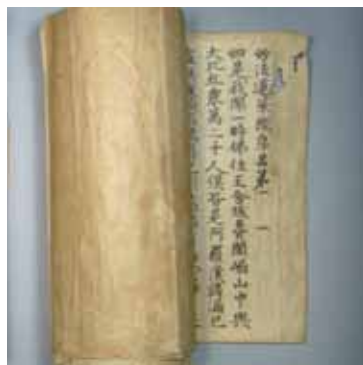 妙法蓮華經序品第一 一
如是我聞一時佛住王舍城耆闍崛山中與
大比丘衆萬二千人俱皆是阿羅漢諸漏已